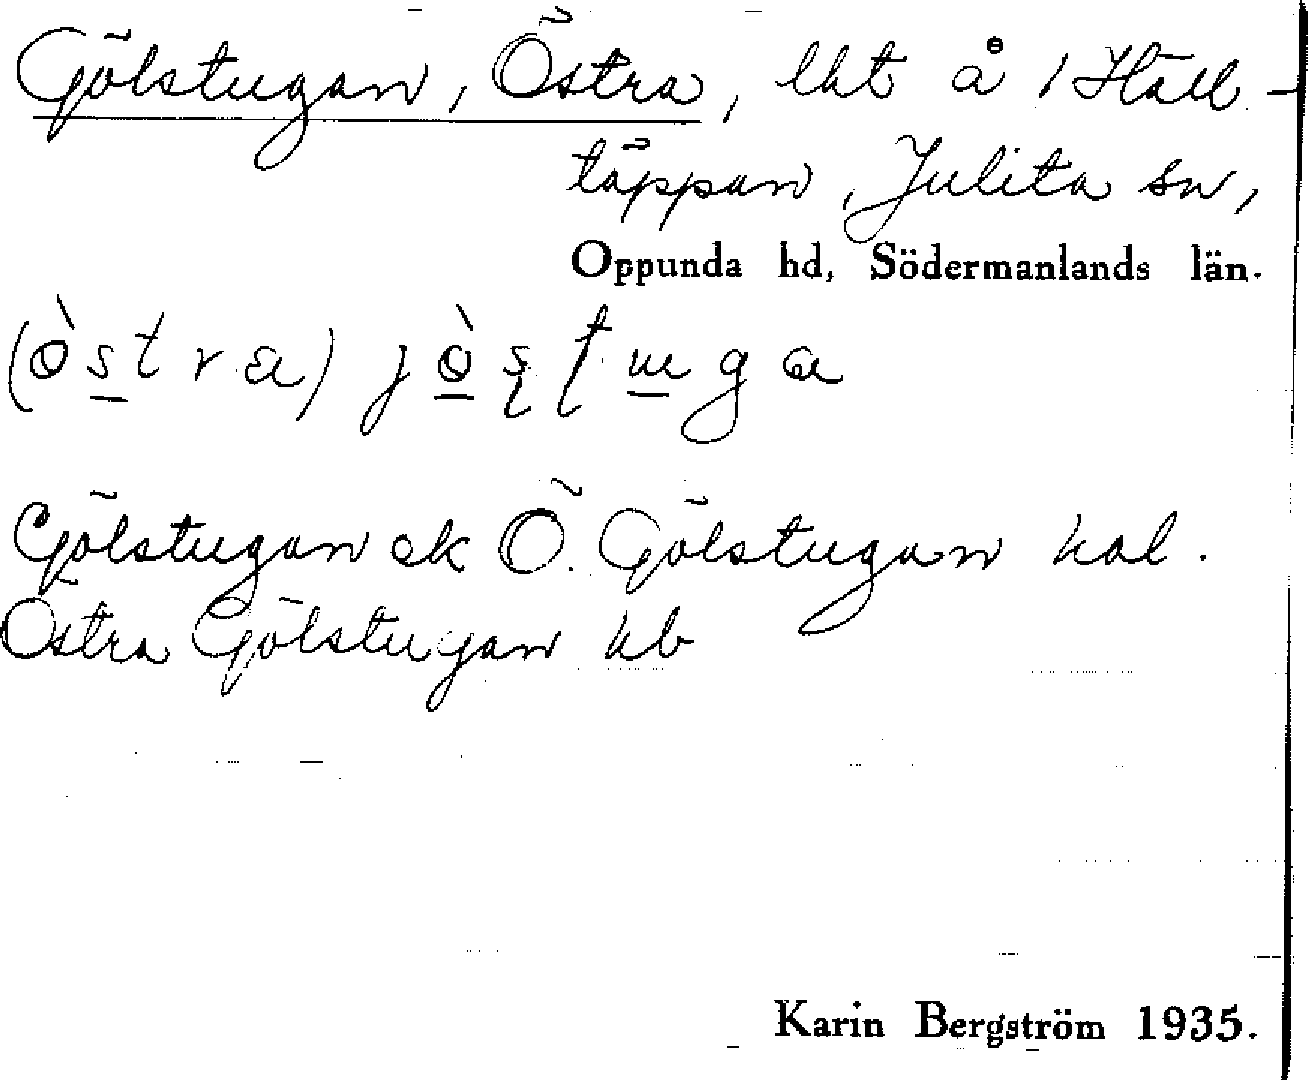 Gölstugan, Östra, lht å 1 Häll-
täppan, Julita sn,
Oppunda hd, Södermanlands län.
Gölstugan ek Ö. Gölstugan hal.
Östra Gölstugan hb
Karin Bergström 1935.